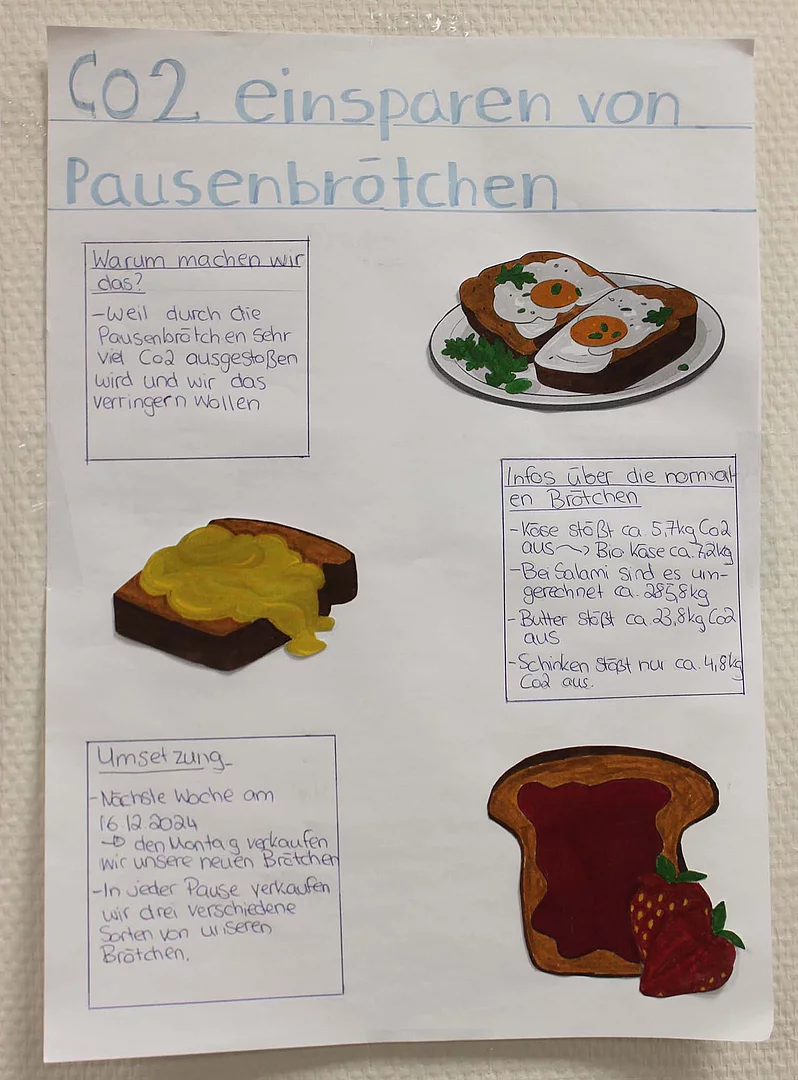 Co2 einsparen von
Pausenbrötchen
Warum machen wir
das?
-Weil durch die
Pausenbrötchen sehr
viel Co2 ausgestoßen
wird und wir das
verringern wollen
Infos über die normal
en Brötchen
-Käse stößt ca. 5,7kg Co2
aus ~> Bio Käse ca. 7,2kg
-Bei Salami sind es um-
gerechnet ca. 285,8kg
-Butter stößt ca. 23,8kg Co2
aus
-Schinken stößt nur ca. 4,8kg
Co2 aus.
Umsetzung
-Nächste Woche am
16.12.2024
-> den Montag verkaufen
wir unsere neuen Brötchen
-In jeder Pause verkaufen
wir drei verschiedene
Sorten von unseren
Brötchen.